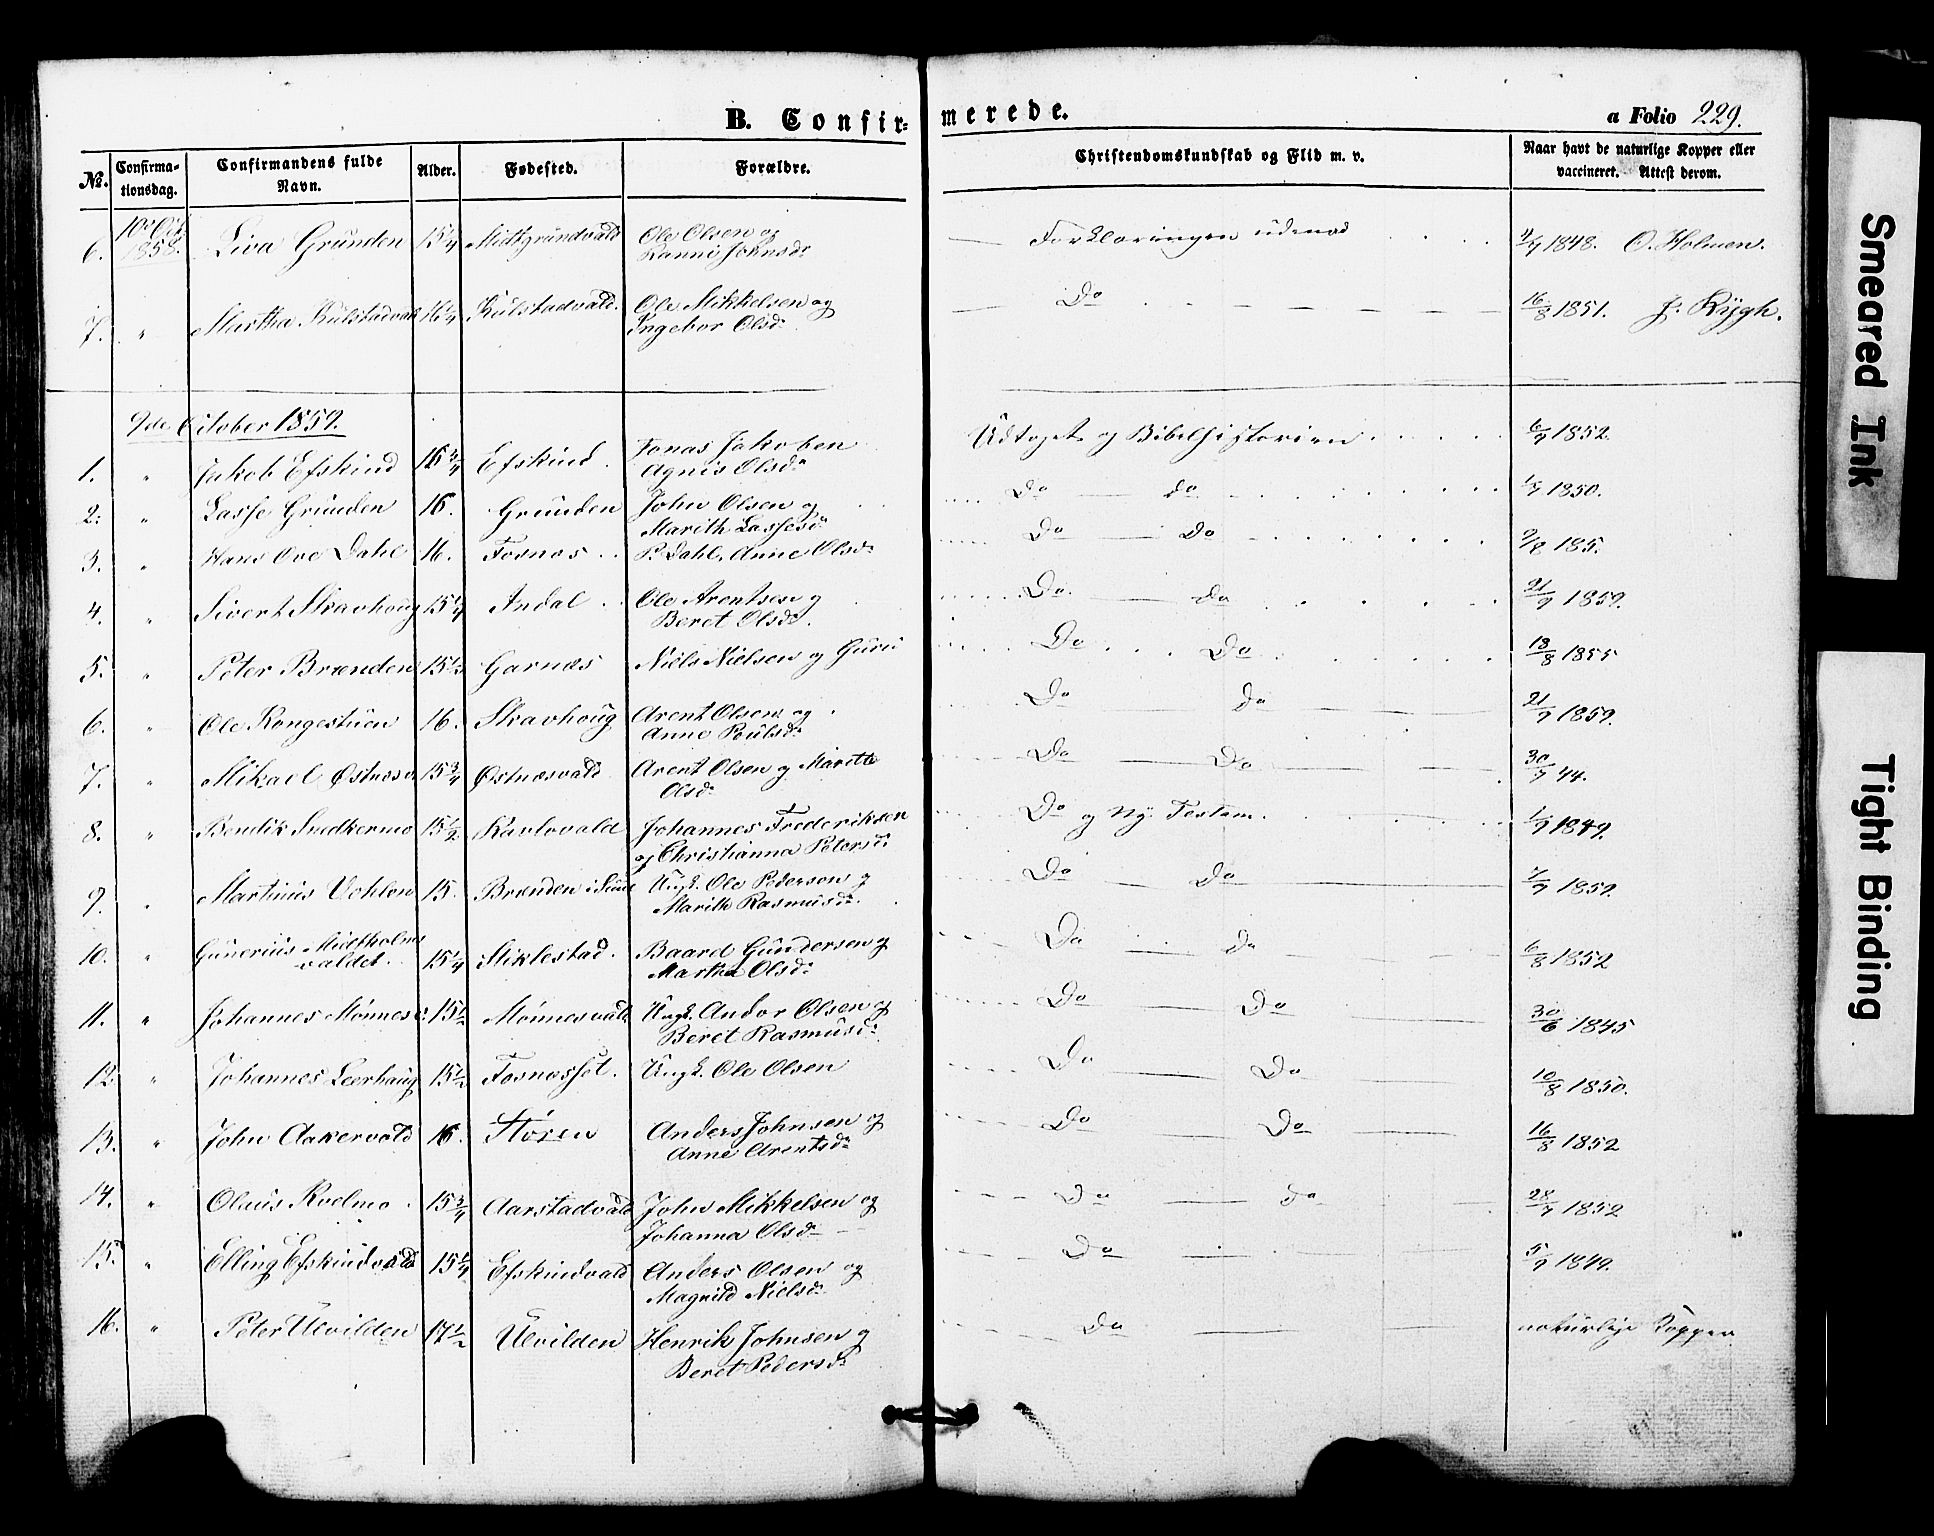 B. Confirmerede.
a Folio 229.
No. Confirmationsdag. Confirmandens fulde Navn. Alder. Fødested. Forældre. Christendomskundskab og Flid m. v. Naar havt de naturlige Kopper eller vaccineret. Attest derom.
6. 10de Oct. 1858. Liva Gründen 15 1/4 Midtgrundvald Ole Olsen og Ranni Johnsdr Forklaringen udenad 1848. O. Holmen.
7. " Martha Külstadvald 16 1/4 Külstadvald. Ole Mikkelsen og Ingebor Olsdr Do 16/8 1851. J. Rÿgh.
9de October 1859.
1. " Jakob Efskind 16 3/4 Efskind. Jonas Jakobsen Agnis Olsdr Udtoget og Bibelhistorien 6/9 1852.
2. " Lasse Gründen 16. Gründen John Olsen og Marith Lassesdr Do do 1850.
3. " Hans Ove Dahl 16. Fosnæs P. Dahl, Anne Olsdr Do Do 185.
4. " Sivert Stravhoug 15 1/4 Indal Ole Arentsen og Beret Olsdr. Do. do 21/9 1859.
5. " Peter Brænden 15 1/2 Garnæs Niels Nielsen og Guru Do Do 18/8 1855
6. " Ole Kongestüen 16. Stravhoug Arent Olsen og Anne Poülsdr Do do 21/9 1859.
7. " Mikael Østnæsv. 15 3/4 Østnæsvald Arent Olsen og Marith Olsdr Do Do 30/9 44.
8. " Bendik Snedkermo 15 1/2 Karlovald Johannes Frederiksen og Christianna Petersdr Do og Ny Testam. 1/9 1849.
9. " Martinüs Vohlen 15. Brænden i Süül Ungk. Ole Pederson og Marith Rasmusdr. Do Do 7/9 1859.
10. " Günerius Midtholmsvaldet. 15 1/4 Stiklestad. Baard Gündersen og Martha Olsdr Do do 6/8 1852
11. " Johannes Mönnesv: 15 1/2 Mönnesvald Ungk. Andor Olsen og Beret Rasmüsdr. Do Do 30/6 1845
12. " Johannes Leerhaug 15 1/2 Fosnæsset. Ungk. Ole Olsen Do Do 10/8 1850.
13. " John Aakervald 16. Stören Anders Johnsen og Anne Arentsdr Do Do 16/8 1852
14. " Olaus Kvelmo. 15 3/4 Aarstadvald John Mikkelsen og Johanna Olsdr Do do 28/9 1852
15. " Elling Efskindvald 15 1/4 Efskindvald Anders Olsen og Magnild Nielsdr Do 5/9 1849.
16. " Peter Ulvilden 17 1/2 Ulvilden Henrik Johnsen og Beret Pedersdr Do naturlige Kopper
Smeared Ink
Tight Binding